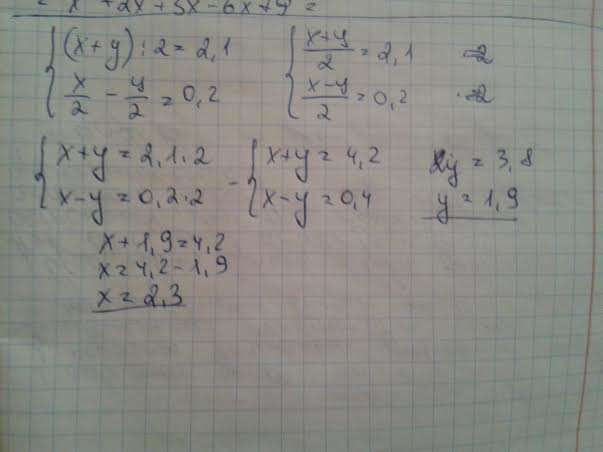 = x² + 2x + 3x - 6x + 9 =
{ (x+y) : 2 = 2,1
x/2 - y/2 = 0,2
{ (x+y)/2 = 2,1 ·2
(x-y)/2 = 0,2 ·2
{ x+y = 2,1·2
x-y = 0,2·2
- { x+y = 4,2
x-y = 0,4
2y = 3,8
y = 1,9
x + 1,9 = 4,2
x = 4,2 - 1,9
x = 2,3